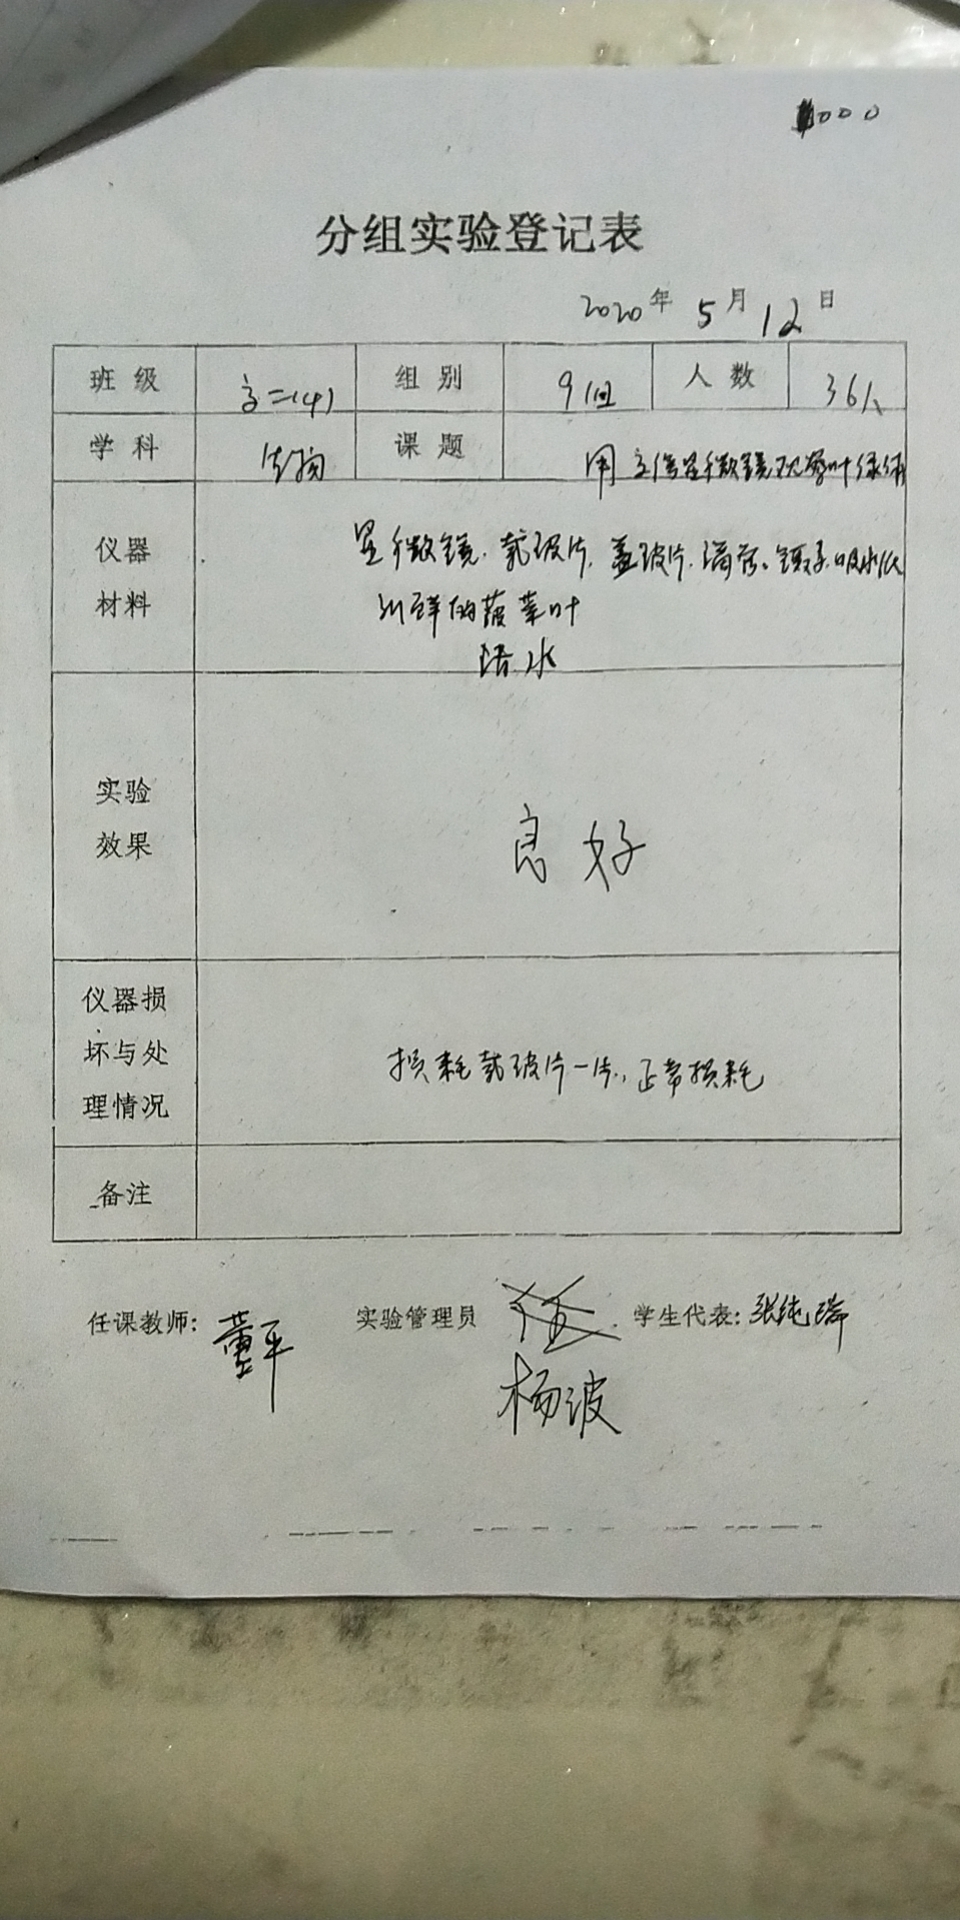 000
分组实验登记表
2020年 5月 12日
班级 高二(4) 组别 9组 人数 36人
学科 生物 课题 用高倍显微镜观察叶绿体
仪器材料 显微镜.载玻片.盖玻片.滴管.镊子.吸水纸
新鲜的菠菜叶
清水
实验效果 良好
仪器损坏与处理情况 损耗载玻片一片,正常损耗
备注
任课教师: 董平 实验管理员 学生代表: 张纯
杨波